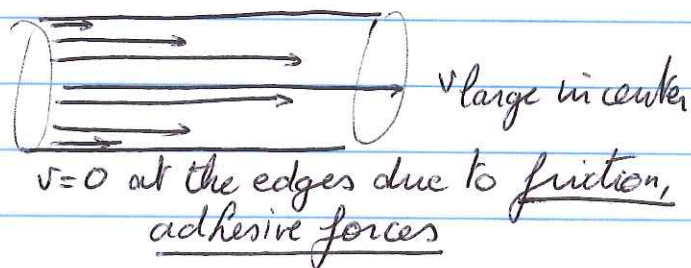 v large in center
v=0 at the edges due to friction,
adhesive forces